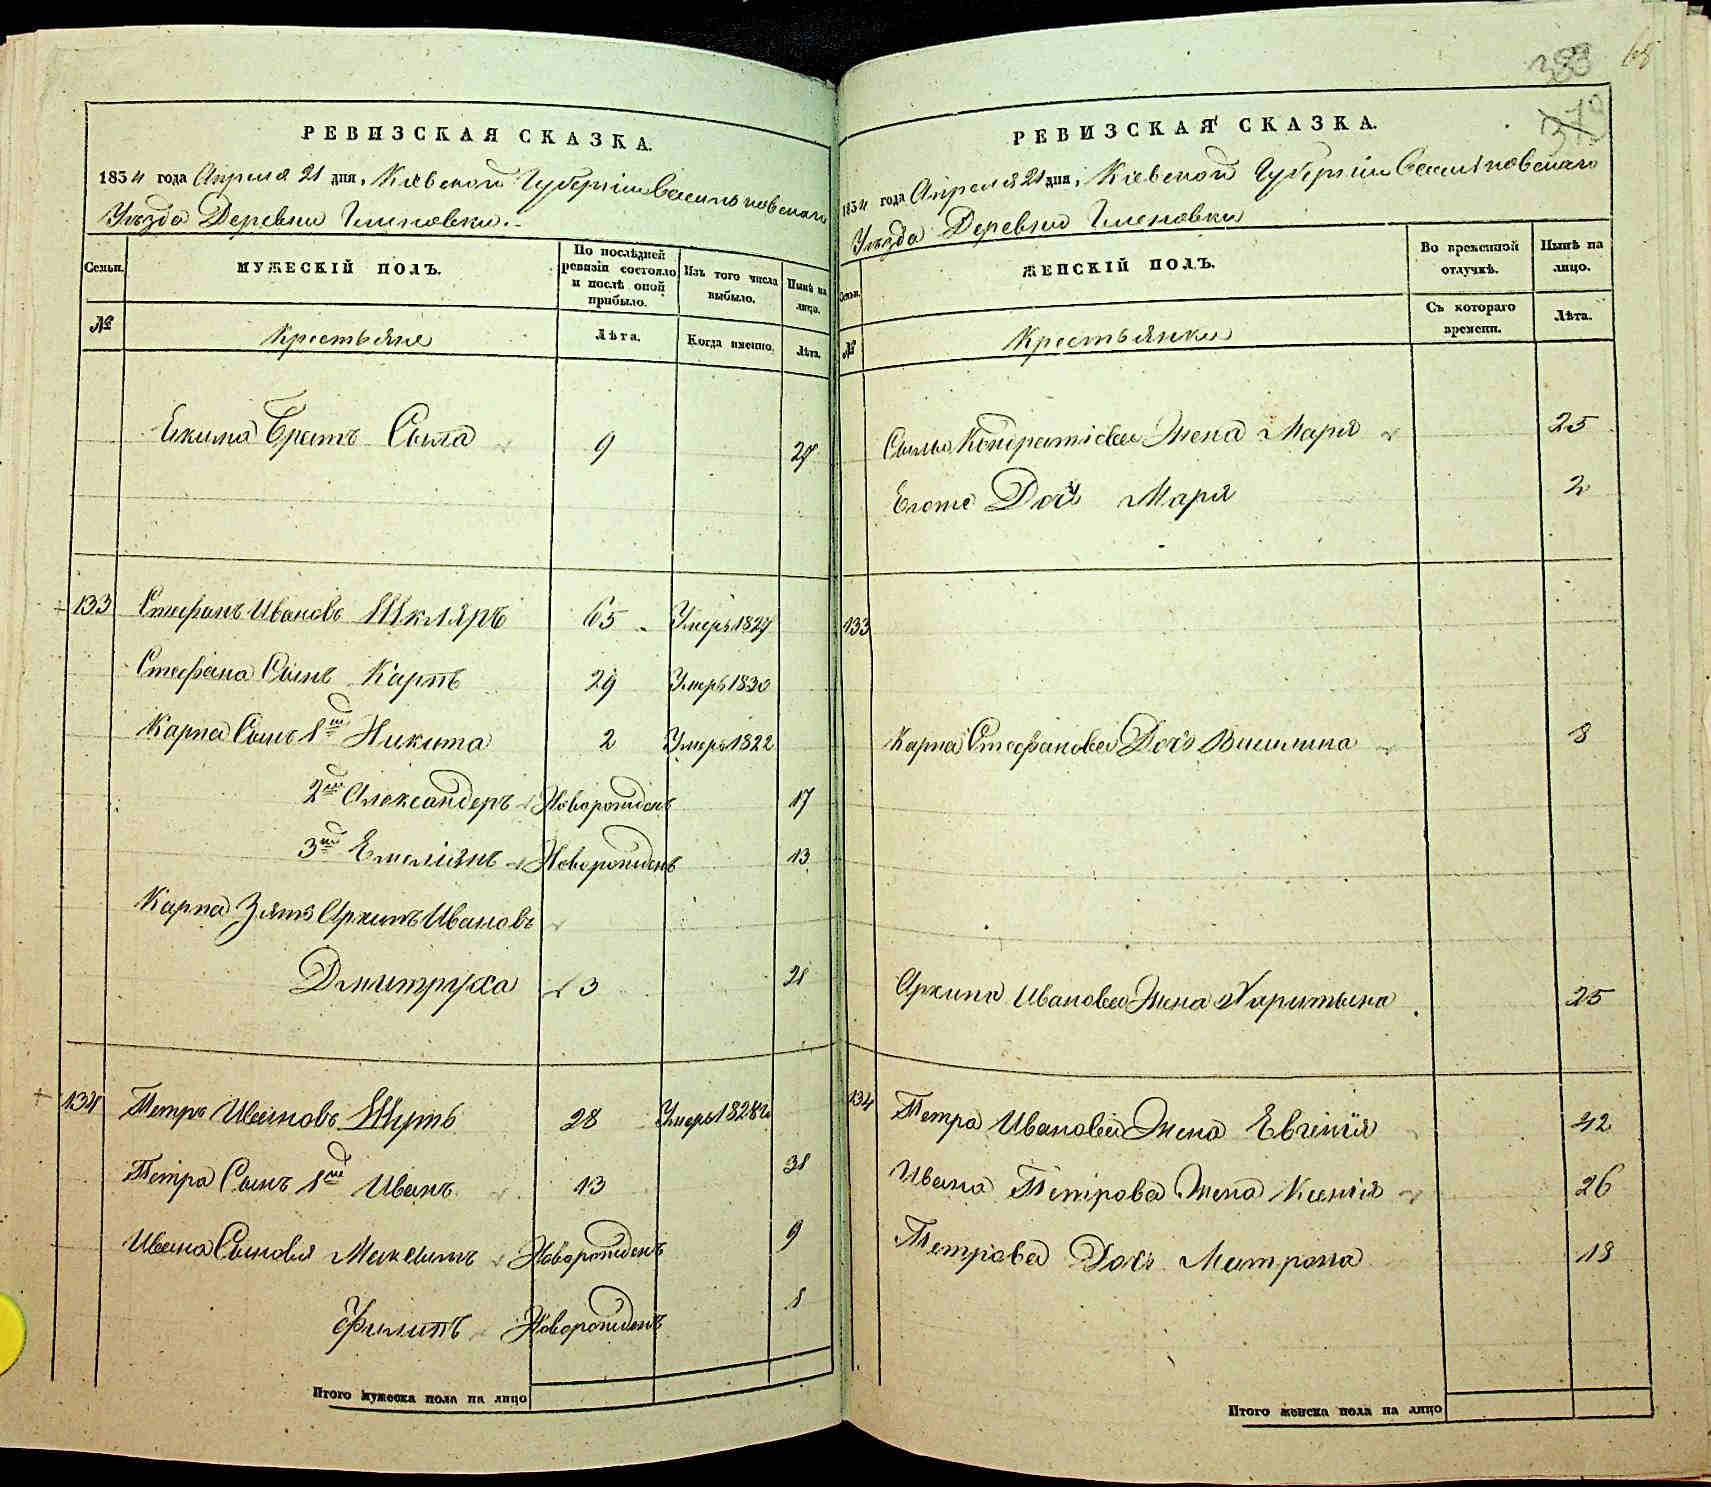 388
65
РЕВИЗСКАЯ СКАЗКА.
1834 года Апреля 21 дня, Кіевской Губерніи Васильковскаго
Уѣзда Деревни
Семьи.
МУЖЕСКІЙ ПОЛЪ.
По послѣдней ревизіи состояло и послѣ оной прибыло.
Изъ того числа выбыло.
Нынѣ на лицо.
№
Крестьяне
Лѣта.
Когда именно.
Лѣта.
Екима Братъ Сыла 9
133 Стефанъ Ивановъ Шкляръ 65 Умеръ 1827
Стефана Сынъ Карпъ 29 Умеръ 1830
Карпа Сынъ 1й Никита 2 Умеръ 1822
2й Александеръ Новорожденъ 17
3й Емеліянъ Новорожденъ 13
Карпа Зять Архипъ Ивановъ
Дмитруха 3 21
134 Петръ Ивановъ 28 Умеръ 1828
Петра Сынъ 1й Иванъ 13 31
Ивана Сыновья Максимъ Новорожденъ 9
Филипъ Новорожденъ 1
Итого мужеска пола на лицо
РЕВИЗСКАЯ СКАЗКА.
1834 года Апреля 21 дня, Кіевской Губерніи Васильковскаго
Уѣзда Деревни
Семьи.
ЖЕНСКІЙ ПОЛЪ.
Во временной отлучкѣ.
Нынѣ на лицо.
№
Крестьянки
Съ котораго времени.
Лѣта.
Сылы Кондратіева Жена Марія 25
Егоже Дочь Марія 2
133
Карпа Стефанова Дочь Василина 8
Архипа Иванова Жена Харитына 25
134 Петра Иванова Жена Евгенія 42
Ивана Петрова Жена Ксенія 26
Петрова Дочь Матрона 18
Итого женска пола на лицо